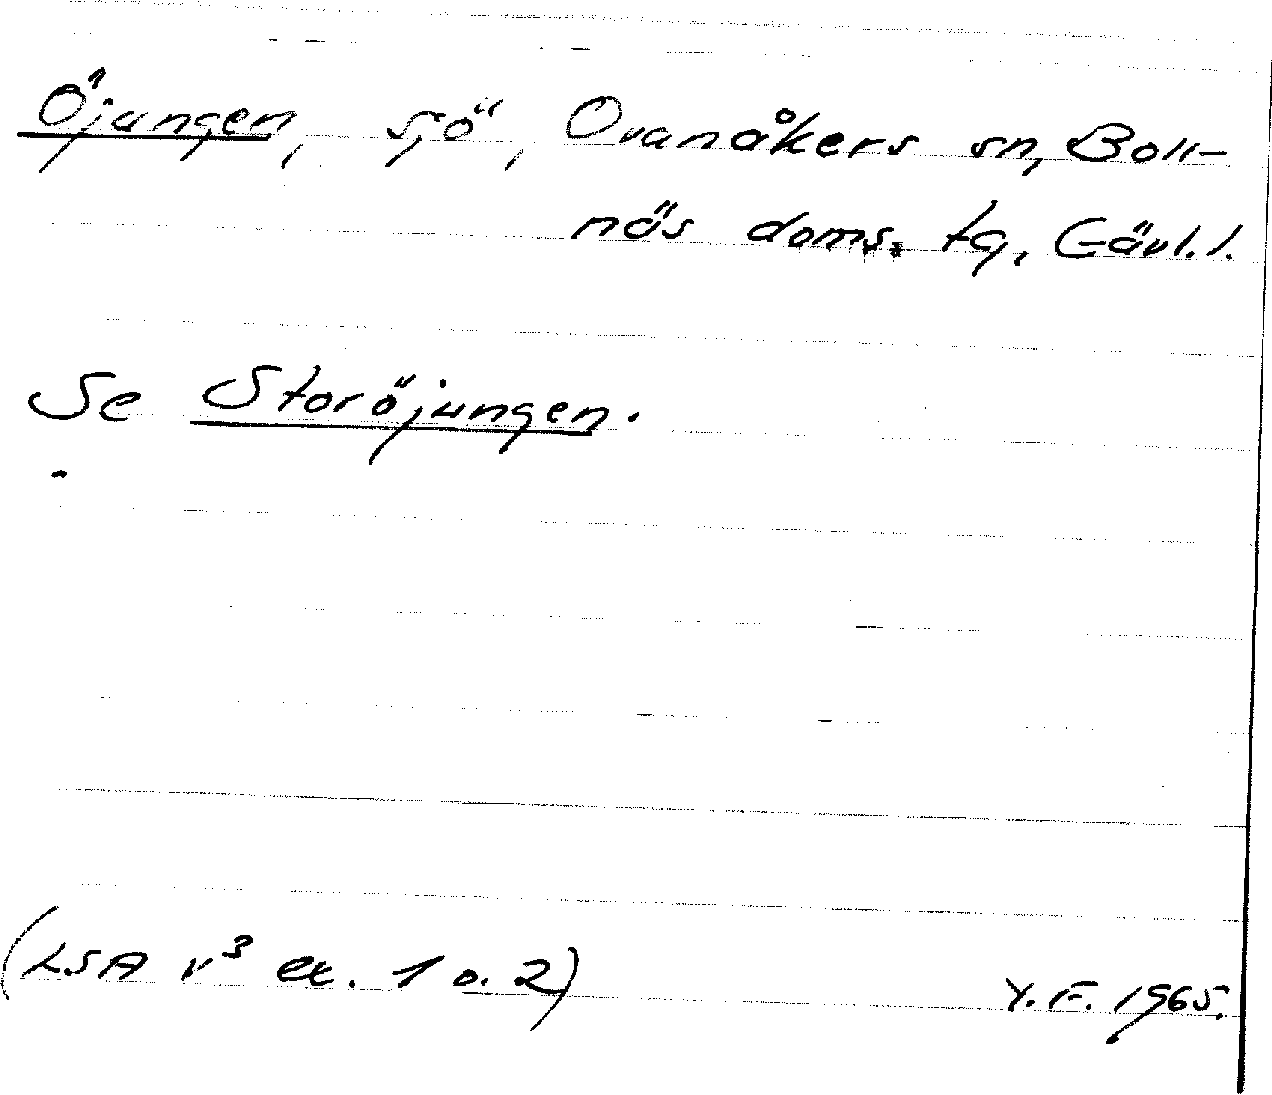 Öjungen, sjö, Ovanåkers sn, Boll-
näs doms. tg, Gävl. l.
Se Storöjungen.
(LSA v³ ex. 1 o. 2)
Y. F. 1965.